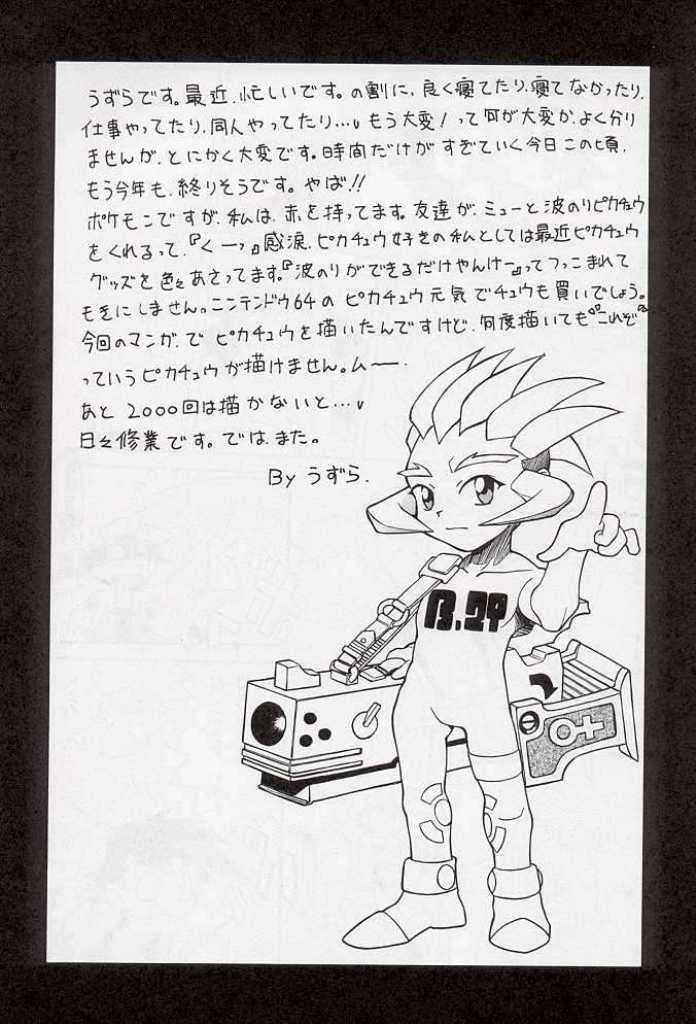 うずらです。最近、忙しいです。の割に、良く寝てたり、寝てなかったり、
仕事やってたり、同人やってたり…。もう大変！って何が大変か、よく分り
ませんが、とにかく大変です。時間だけがすぎていく今日この頃、
もう今年も、終りそうです。やば!!
ポケモンですが、私は、赤を持ってます。友達が、ミューと波のりピカチュウ
をくれるって、『くーっ』感涙、ピカチュウ好きの私としては最近ピカチュウ
グッズを色々あさってます。『波のりができるだけやんけー』ってつっこまれて
もきにしませんっニンテンドウ64の ピカチュウ元気でチュウも買いでしょう。
今回のマンガ、で ピカチュウを描いたんですけど、何度描いても〝これぞ〟
っていうピカチュウが描けません。ムー
あと 2000回は描かないと…
日々修業です。では、また。
By うずら.
B.29